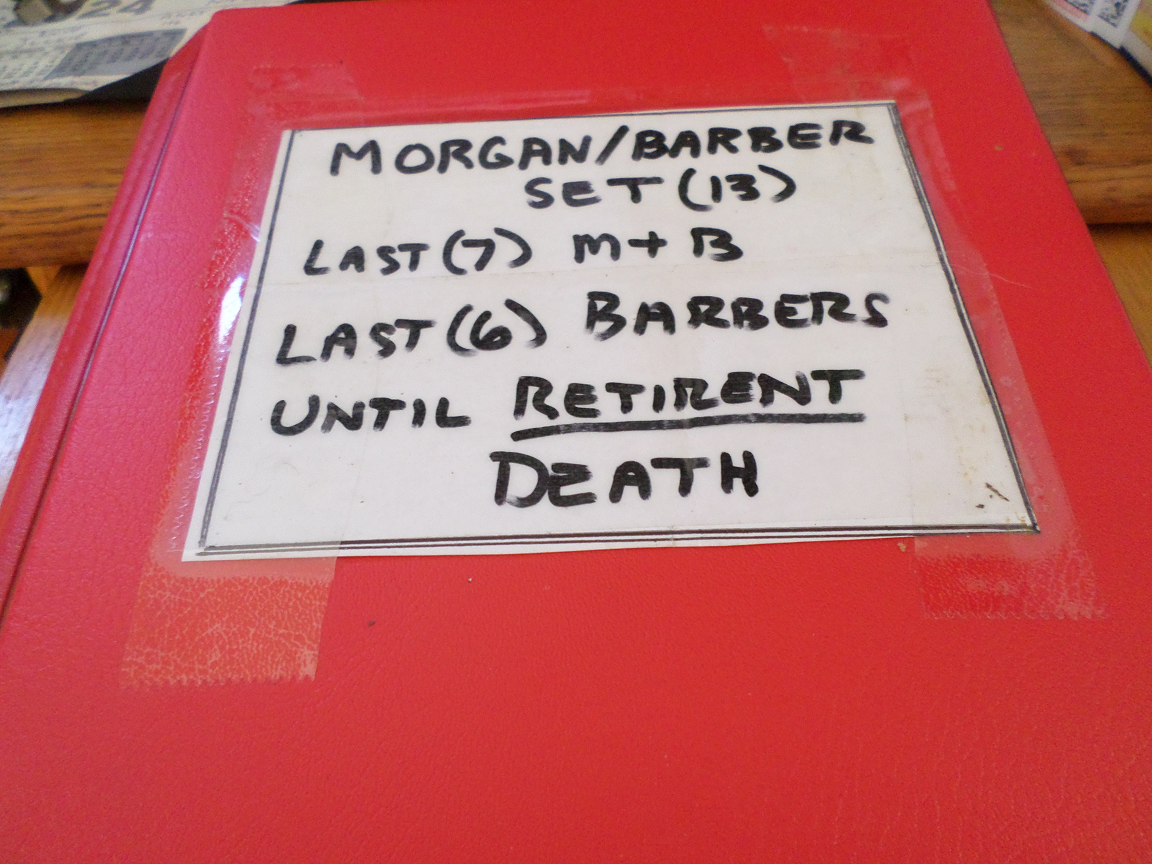 24
MORGAN/BARBER
SET (13)
LAST (7) M + B
LAST (6) BARBERS
UNTIL RETIRENT
DEATH